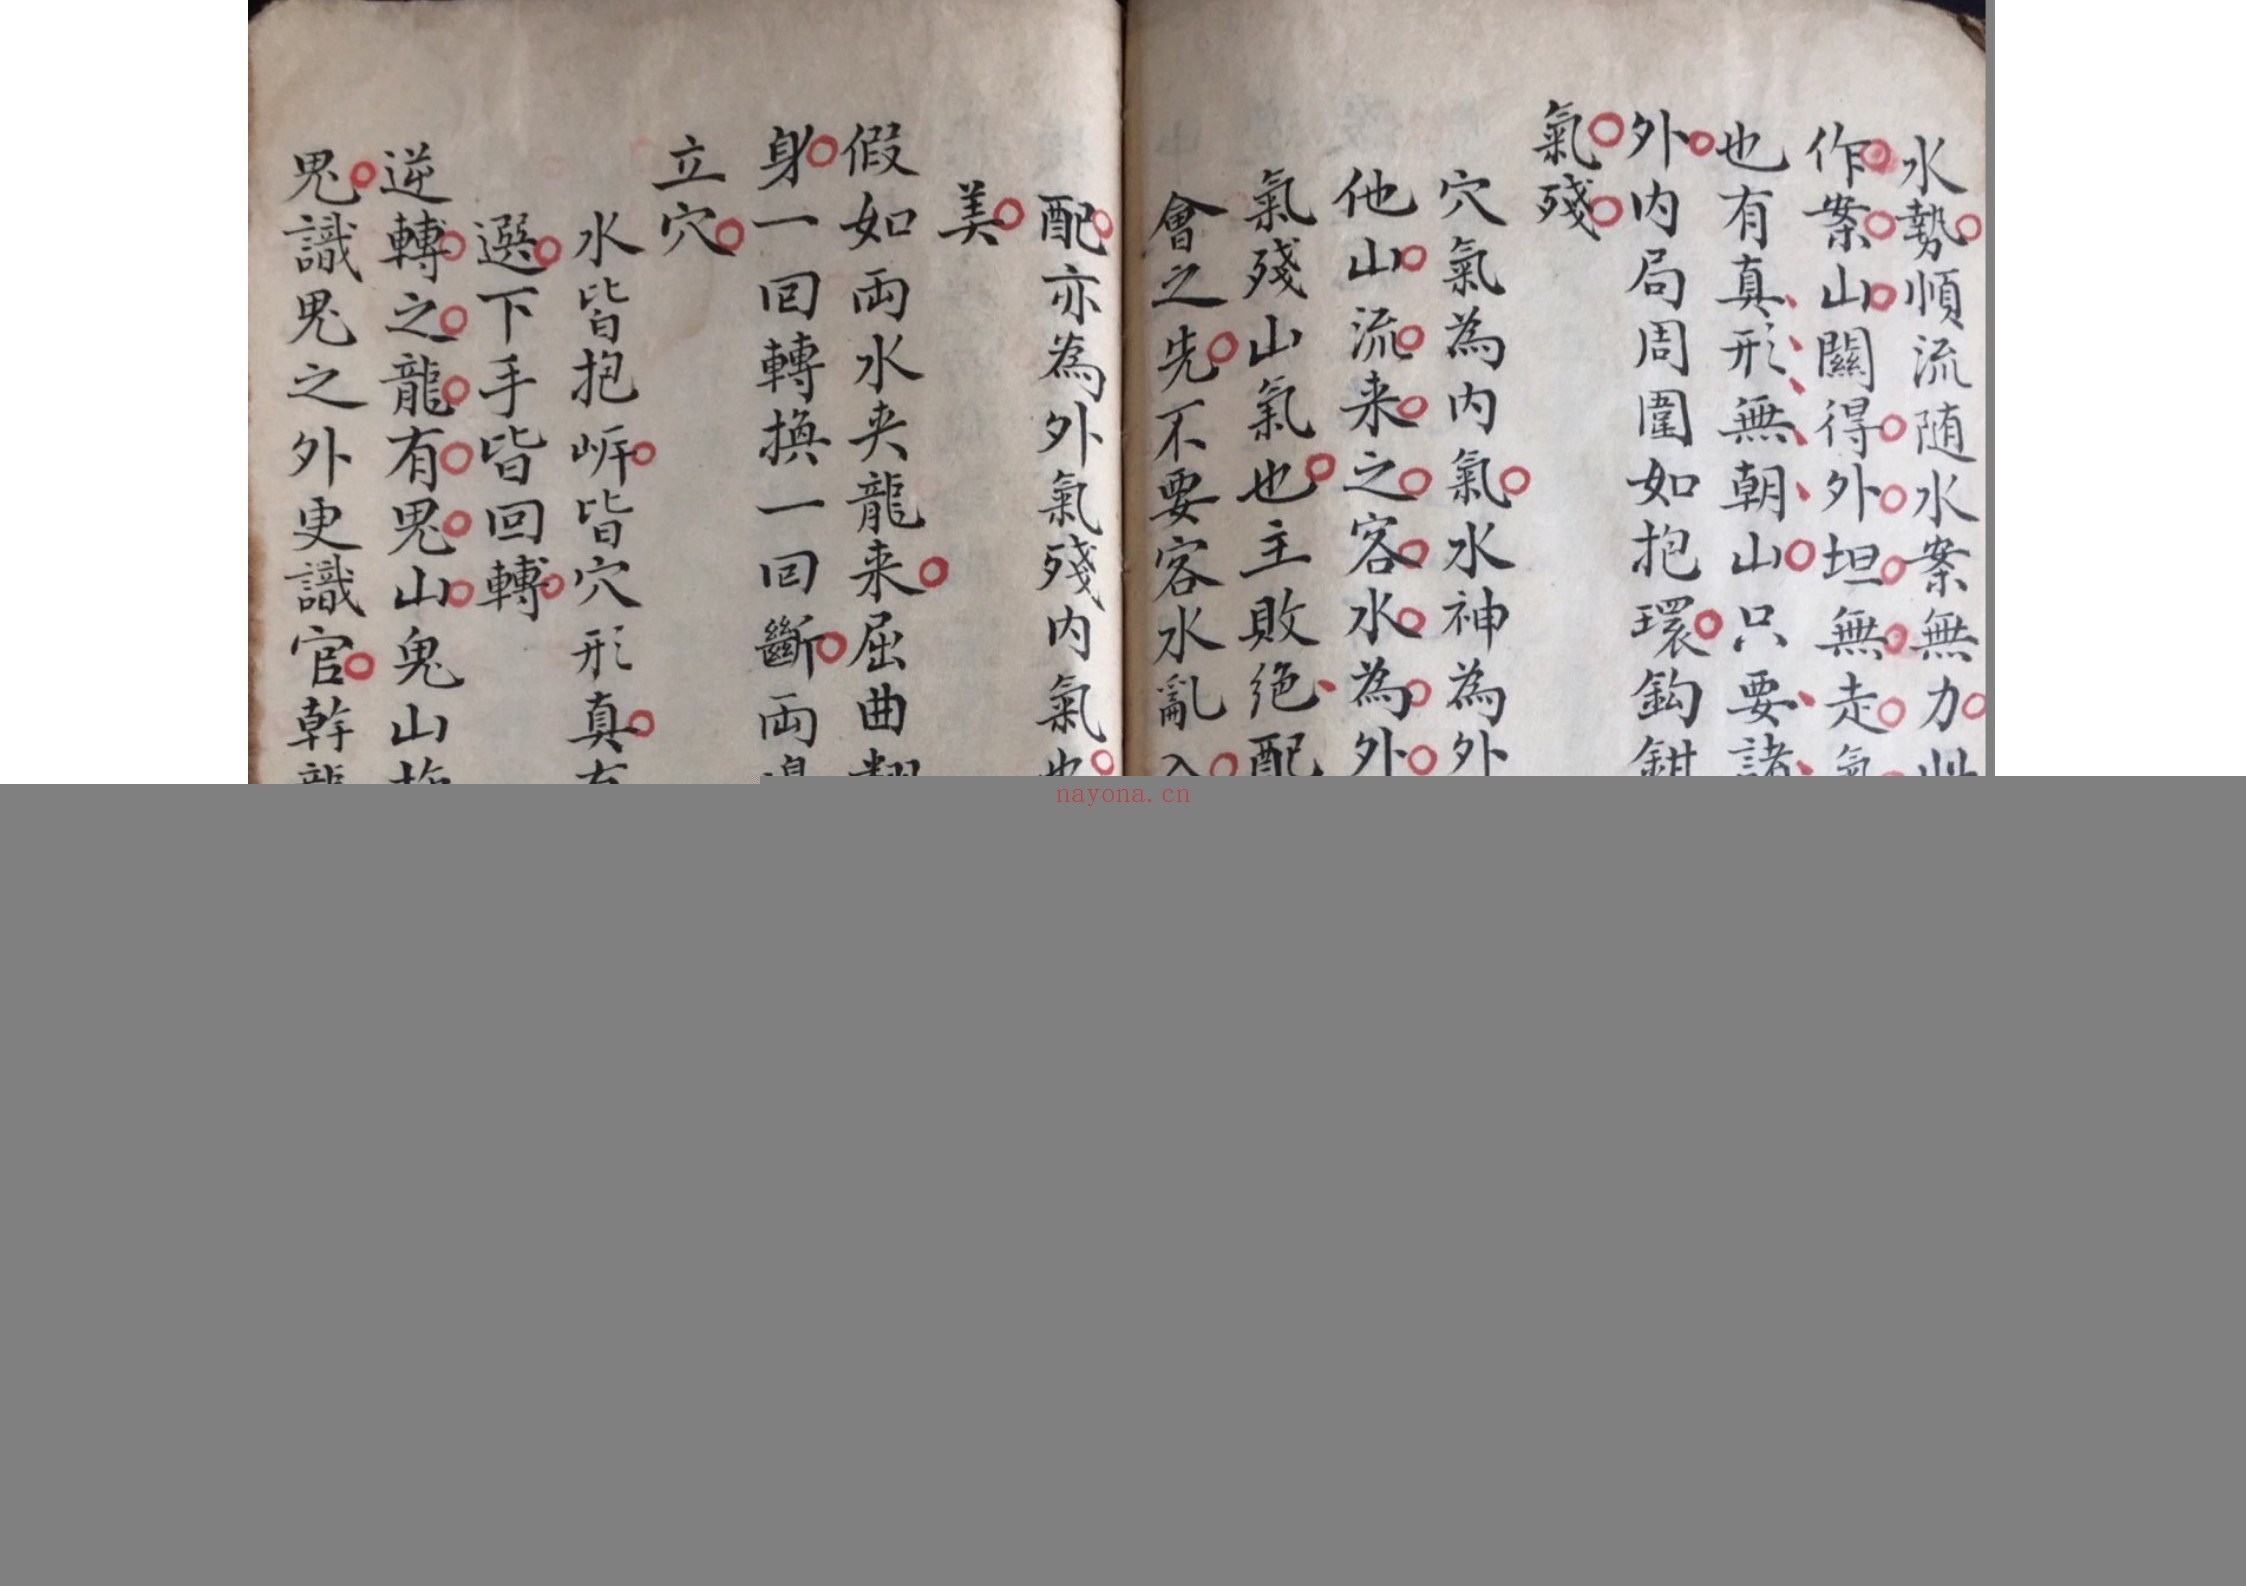 水勢順流随水案無力
作案山關得外坦無走氣
也有真形無朝山只要諸
外内局周圍如抱環鈎鉗
氣殘
穴氣為内氣水神為外
他山流来之客水為外
氣殘山氣也主敗絶配
會之先不要客水亂入
配亦為外氣殘内氣也
美
假如兩水夹龍来屈曲翻
身一囘轉換一囘斷兩邊
立穴
水皆抱岍皆穴形真
選下手皆回轉
逆轉之龍有鬼山鬼山
鬼識鬼之外更識官幹龍
nayona.cn